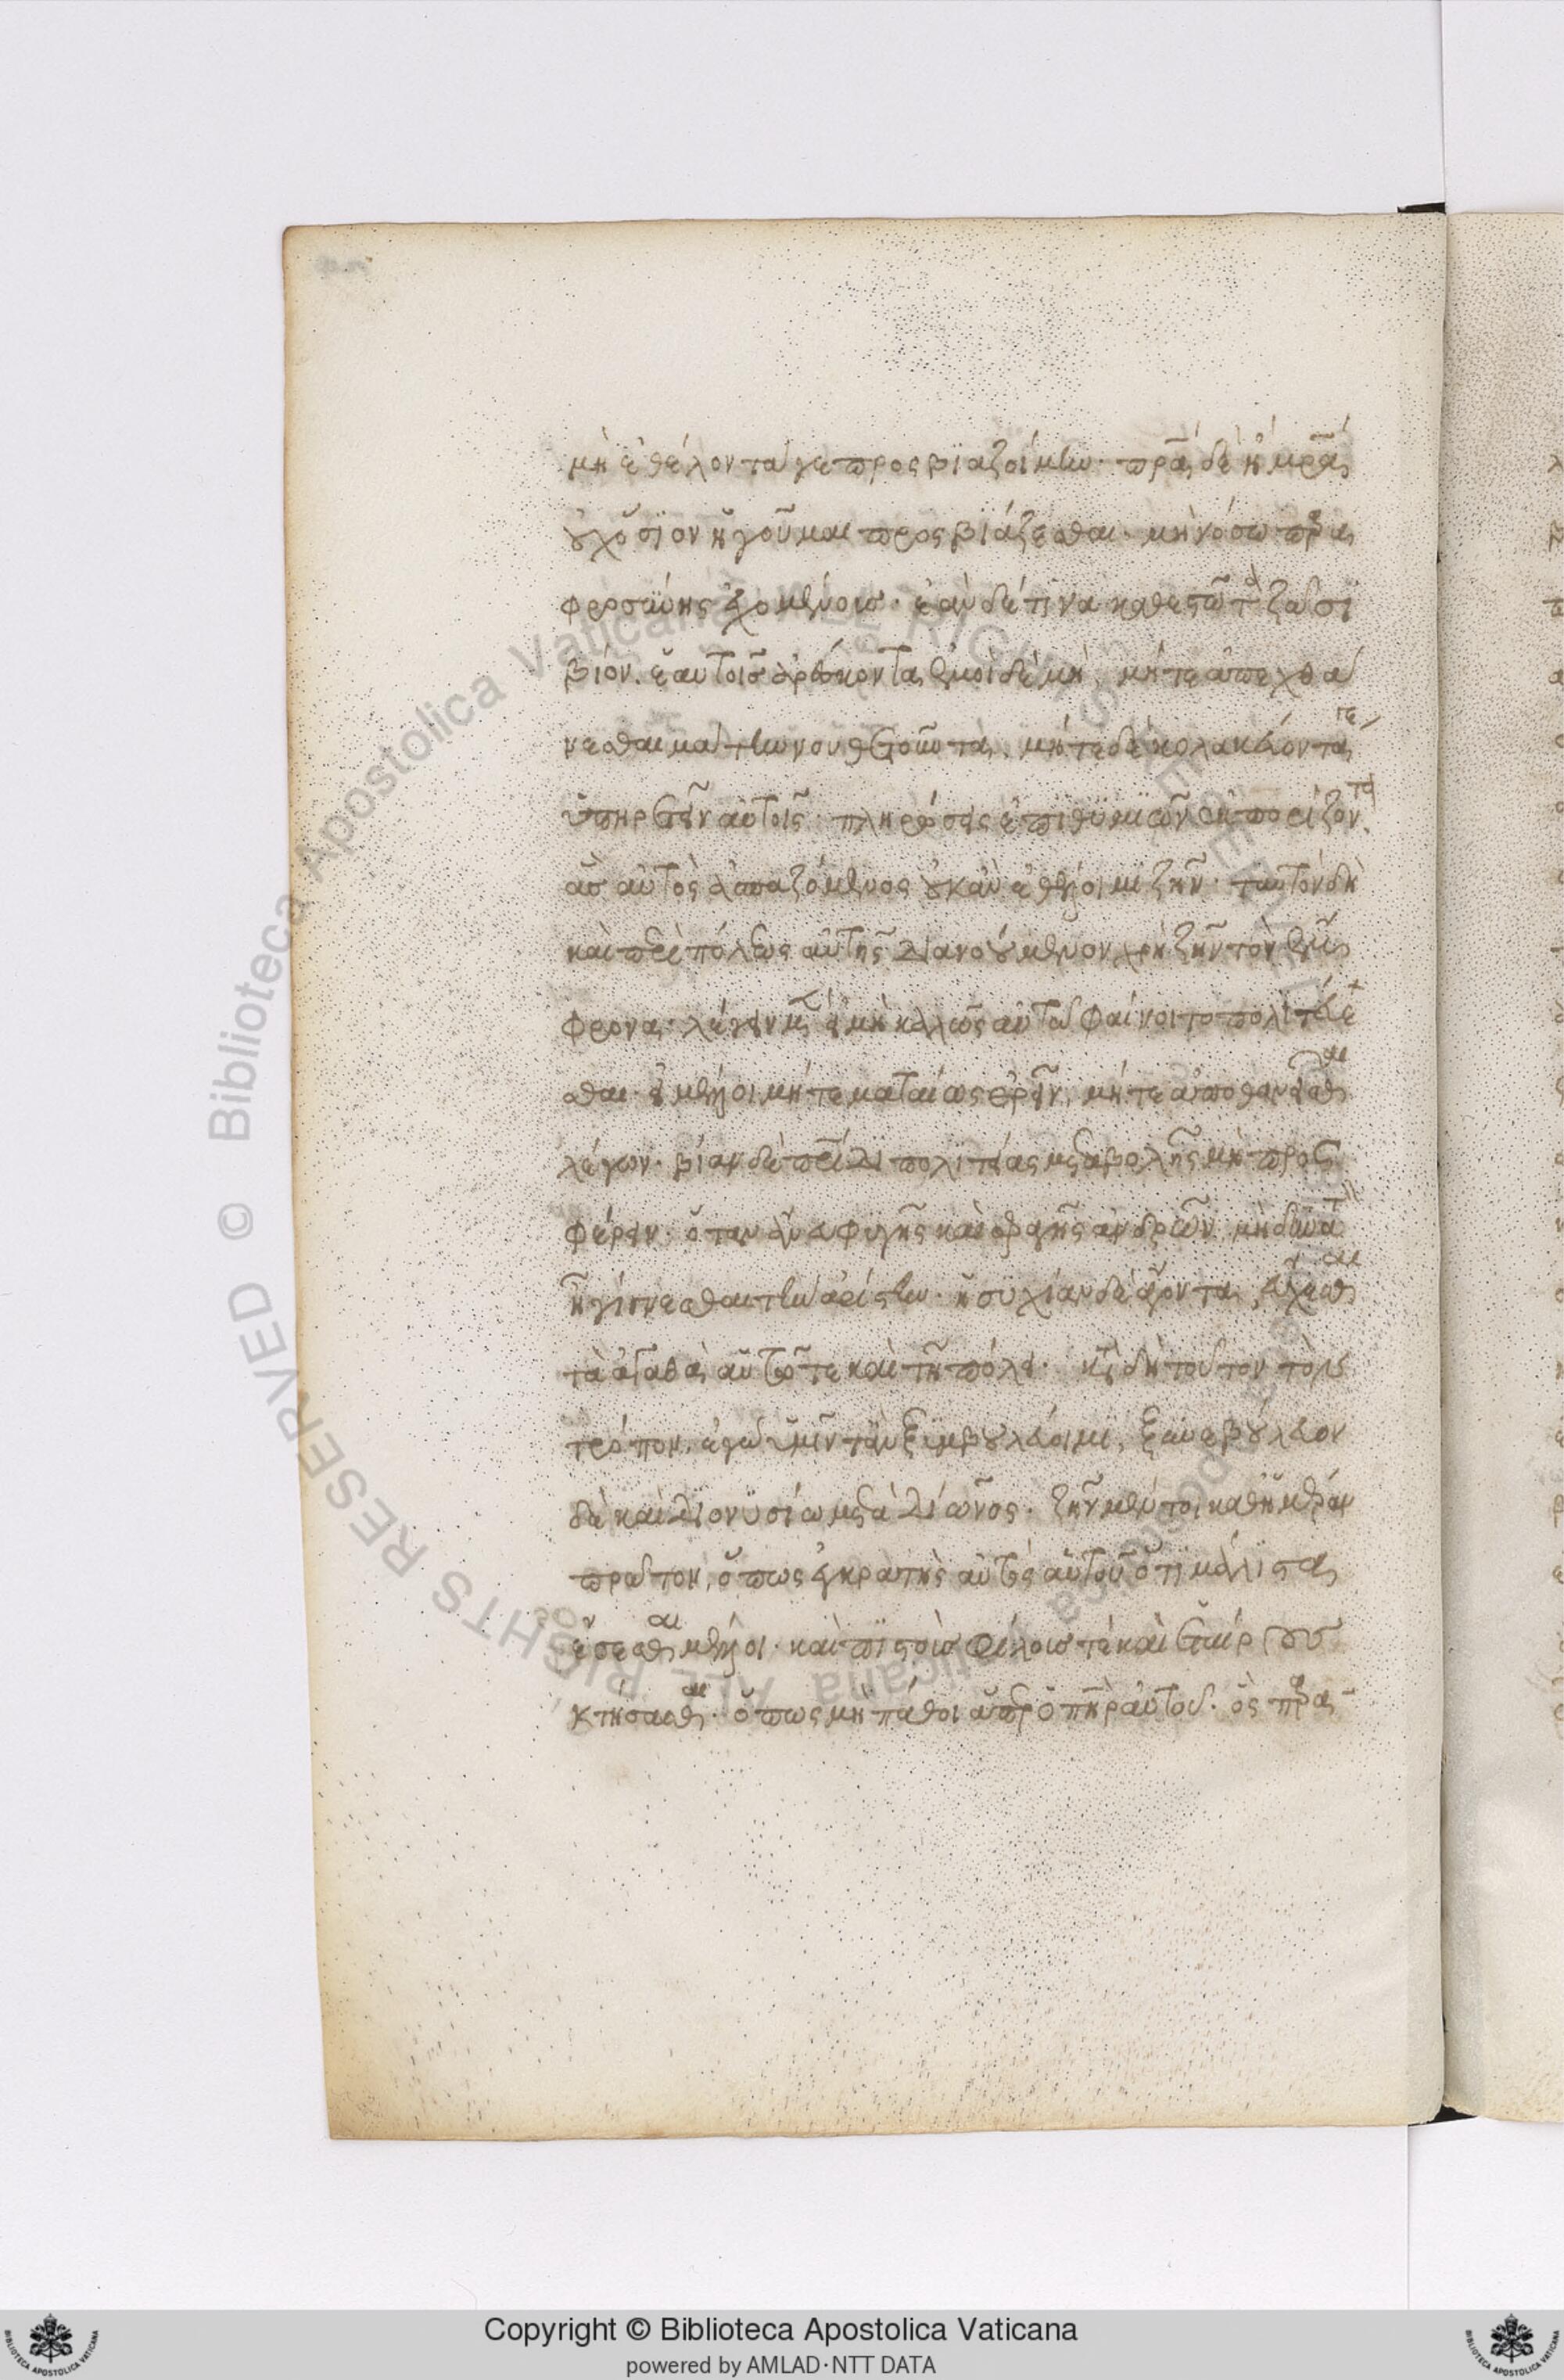 μὴ ἐθέλοντά γε προσβιαζοίμην. πατέρα δὲ ἢ μητέρα
οὐχ ὅσιον ἡγοῦμαι προσβιάζεσθαι. μὴ νόσῳ παρα
φροσύνης ἐχομένοις. ἐὰν δέ τινα καθεστῶτα ζῶσι
βίον. ἑαυτοῖς ἀρέσκοντα, ἐμοὶ δὲ μή, μήτε ἀπεχθά
νεσθαι μάτην νουθετοῦντα, μήτε δὴ κολακεύοντά τε
ὑπηρετεῖν αὐτοῖς. πληρώσεις ἐπιθυμιῶν ἐκπορίζοντα.
ἃς αὐτὸς ἀσπαζόμενος οὐκ ἂν ἐθέλοιμι ζῆν. ταυτὸν δὴ
καὶ περὶ πόλεως αὐτῆς διανοούμενον χρὴ ζῆν τὸν ἔμ
φρονα. λέγειν μὲν εἰ μὴ καλῶς αὐτῷ φαίνοιτο πολιτεύε
σθαι. εἰ μέλλοι μήτε ματαίως ἐρεῖν, μήτε ἀποθανεῖσθαι
λέγων. βίαν δὲ πατρίδι πολιτείας μεταβολῆς μὴ προσ
φέρειν. ὅταν ἄνευ φυγῆς καὶ σφαγῆς ἀνδρῶν, μὴ δυνατὸν
ᾖ γίγνεσθαι τὴν ἀρίστην. ἡσυχίαν δὲ ἄγοντα, εὔχεσθαι
τὰ ἀγαθὰ αὑτῷ τε καὶ τῇ πόλει. κατὰ δὴ τοῦτον τὸν
τρόπον, ἐγὼ ὑμῖν τ' ἂν ξυμβουλεύοιμι, ξυνεβούλευον
δὲ καὶ Διονυσίῳ μετὰ Δίωνος. ζῆν μέντοι καθ' ἡμέραν
πρῶτον, ὅπως ἐγκρατὴς αὐτὸς αὑτοῦ ὅτι μάλιστα
ἔσεσθαι μέλλοι. καὶ πιστοὺς φίλους τε καὶ ἑταίρους
κτήσασθαι. ὅπως μὴ πάθοι ἅπερ ὁ πατὴρ αὐτοῦ. ὃς παρα
Copyright © Biblioteca Apostolica Vaticana
powered by AMLAD·NTT DATA